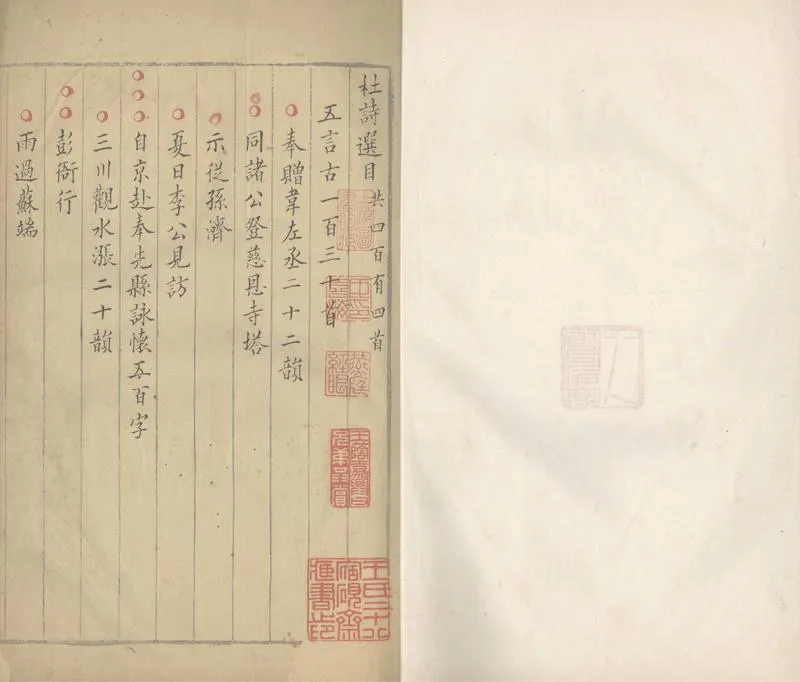 杜詩選目共四百有四首
五言古一百三十首
奉贈韋左丞二十二韻
同諸公登慈恩寺塔
示從孫濟
夏日李公見訪
自京赴奉先縣詠懷五百字
三川觀水漲二十韻
彭衙行
雨過蘇端
燕庭經眼
王氏二十八宿硯齋藏書印